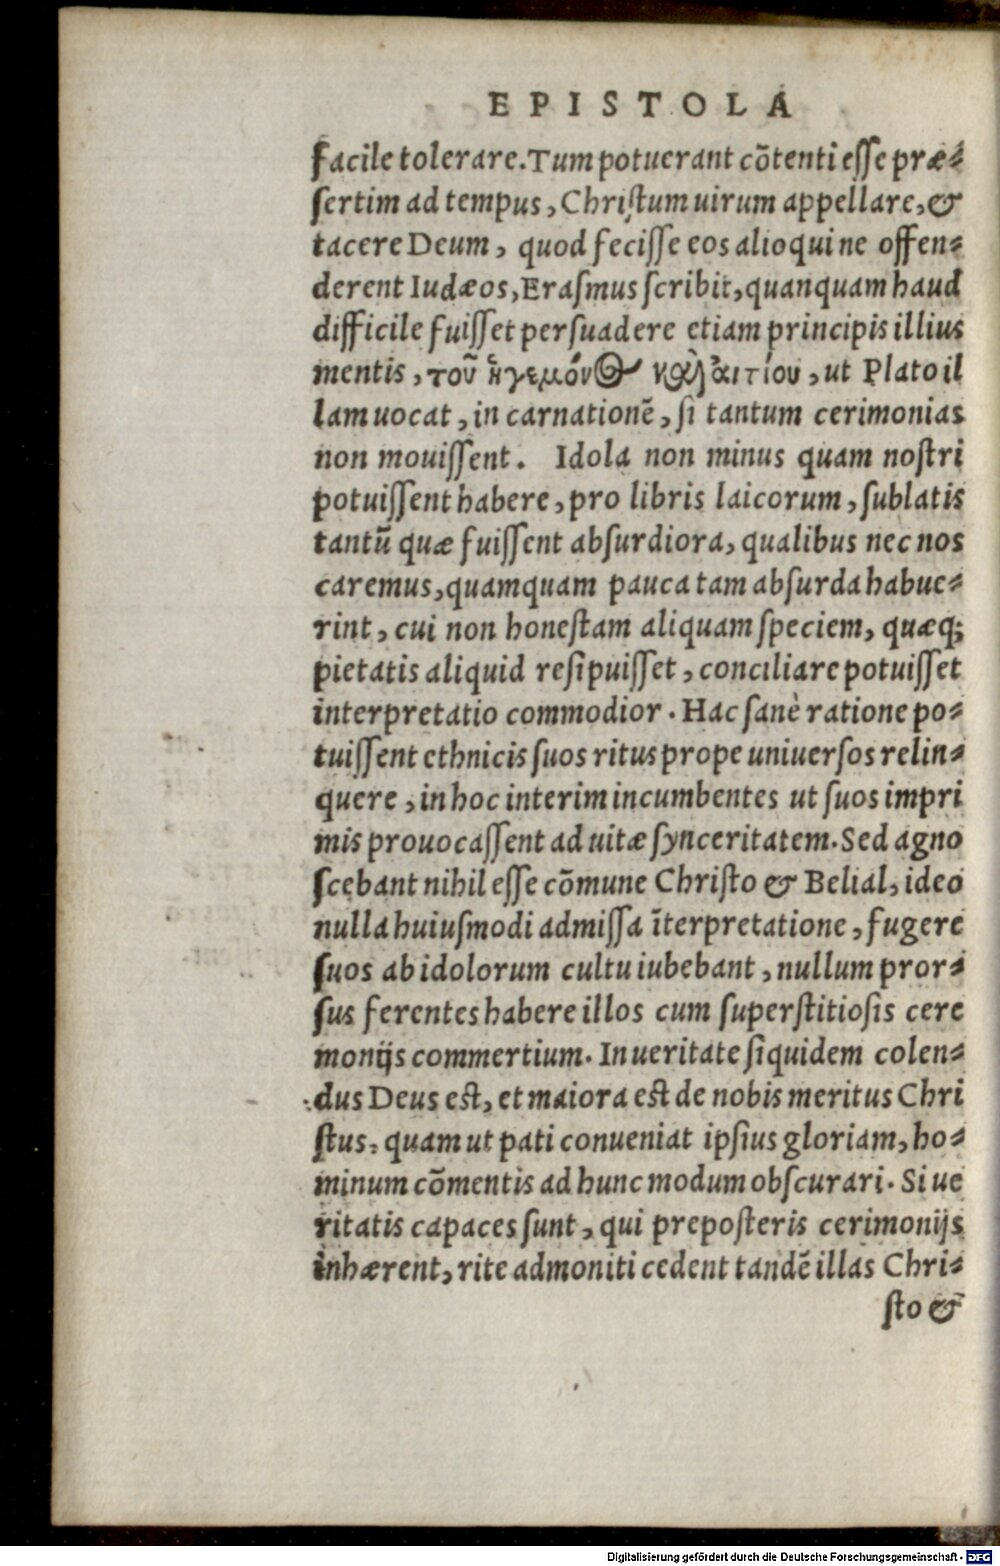 EPISTOLA
facile tolerare. Tum potuerant cõtenti esse præ-
sertim ad tempus, Christum uirum appellare, &
tacere Deum, quod fecisse eos alioqui ne offen-
derent Iudæos, Erasmus scribit, quanquam haud
difficile fuisset persuadere etiam principis illius
mentis, τοῦ ἡγεμόνος καὶ αἰτίου, ut Plato il
lam uocat, in carnationẽ, si tantum cerimonias
non mouissent. Idola non minus quam nostri
potuissent habere, pro libris laicorum, sublatis
tantũ quæ fuissent absurdiora, qualibus nec nos
caremus, quamquam pauca tam absurda habue-
rint, cui non honestam aliquam speciem, quæq;
pietatis aliquid resipuisset, conciliare potuisset
interpretatio commodior. Hac sanè ratione po-
tuissent ethnicis suos ritus prope uniuersos relin-
quere, in hoc interim incumbentes ut suos impri
mis prouocassent ad uitæ synceritatem. Sed agno
scebant nihil esse cõmune Christo & Belial, ideo
nulla huiusmodi admissa ĩterpretatione, fugere
suos ab idolorum cultu iubebant, nullum pror-
sus ferentes habere illos cum superstitiosis cere
monijs commertium. In ueritate siquidem colen-
dus Deus est, et maiora est de nobis meritus Chri
stus, quam ut pati conueniat ipsius gloriam, ho-
minum cõmentis ad hunc modum obscurari. Si ue
ritatis capaces sunt, qui preposteris cerimonijs
inhærent, rite admoniti cedent tandẽ illas Chri-
sto &
Digitalisierung gefördert durch die Deutsche Forschungsgemeinschaft - DFG